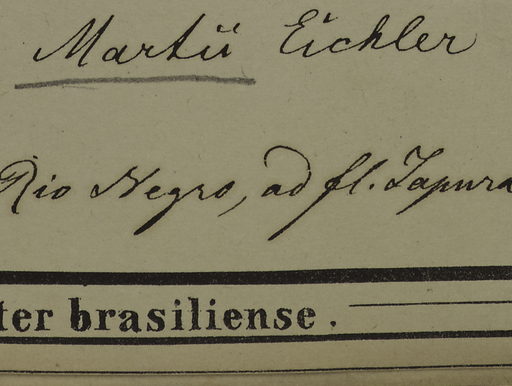 Martii Eichler
Rio Negro, ad fl. Japura
ter brasiliense.